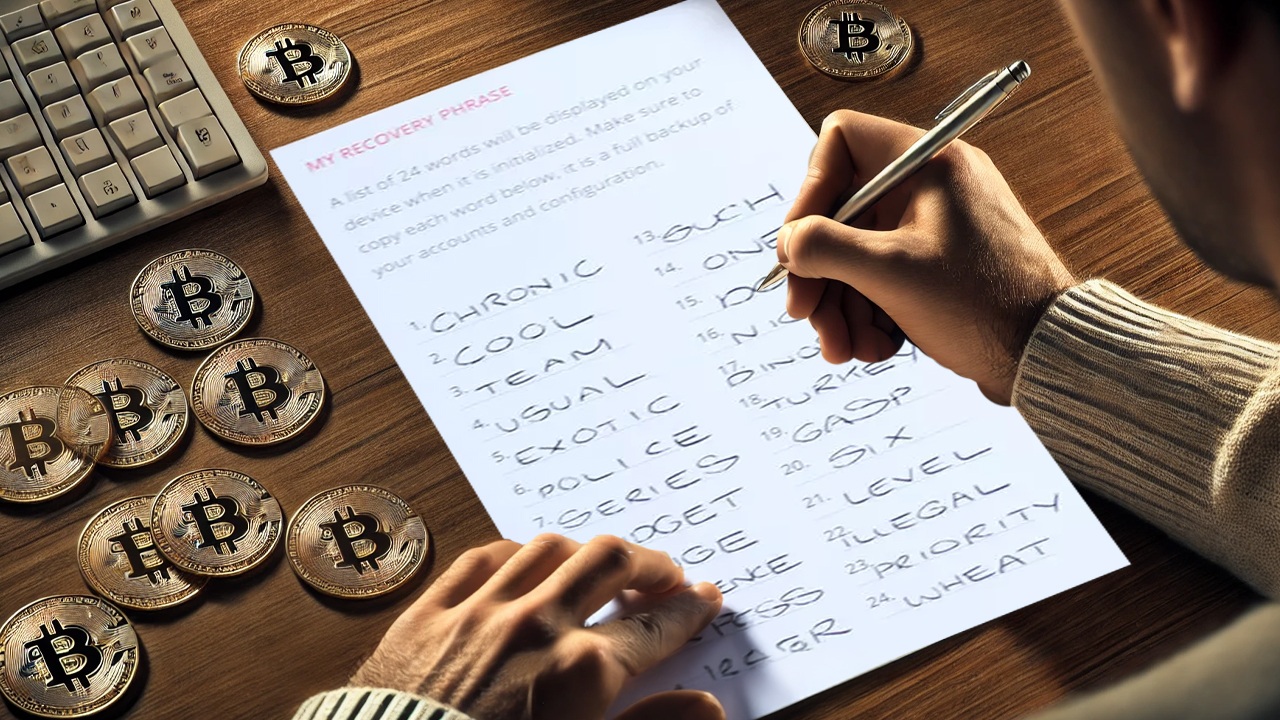 MY RECOVERY PHRASE
A list of 24 words will be displayed on your
device when it is initialized. Make sure to
copy each word below, it is a full backup of
your accounts and configuration.
1. CHRONIC
2. COOL
3. TEAM
4. USUAL
5. EXOTIC
6. POLICE
7. SERIES
DGET
13. SUCH
14. ONE
15.
16.
17.
18. TURKEY
19. GASP
20. SIX
21. LEVEL
22. ILLEGAL
23. PRIORITY
24. WHEAT